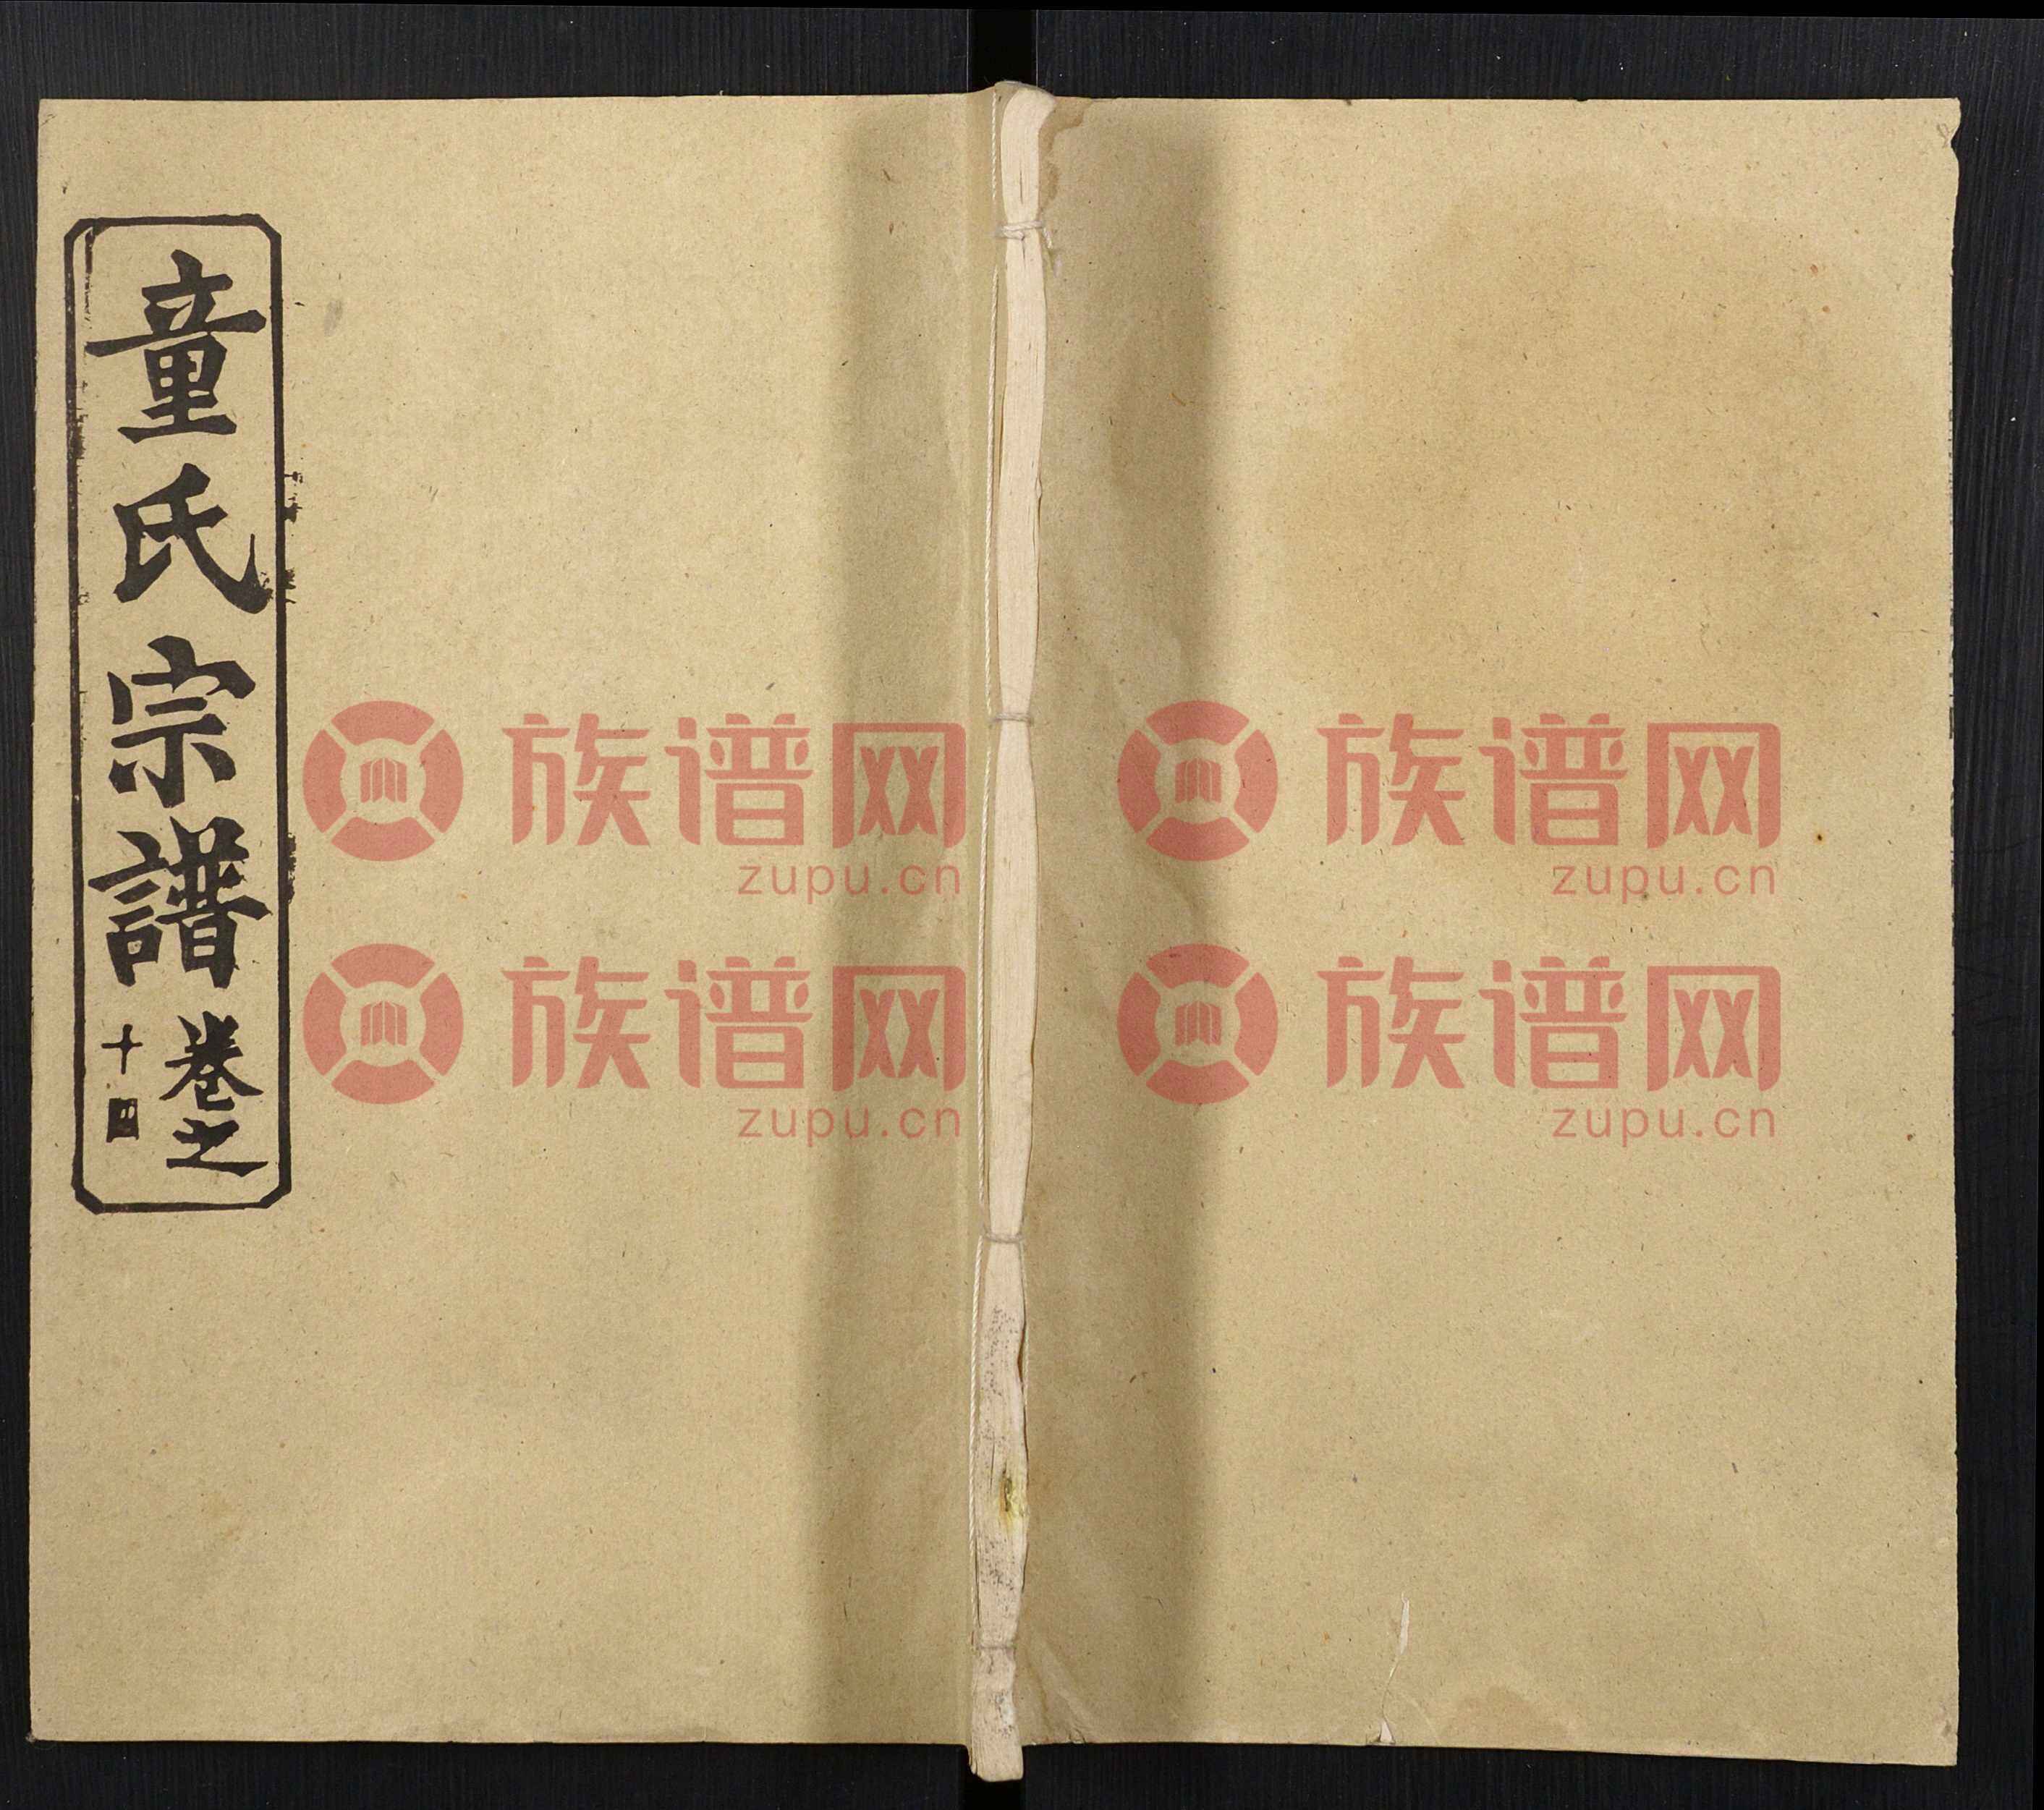 童氏宗譜
卷之
十四
族谱网 族谱网
zupu.cn zupu.cn
族谱网 族谱网
zupu.cn zupu.cn